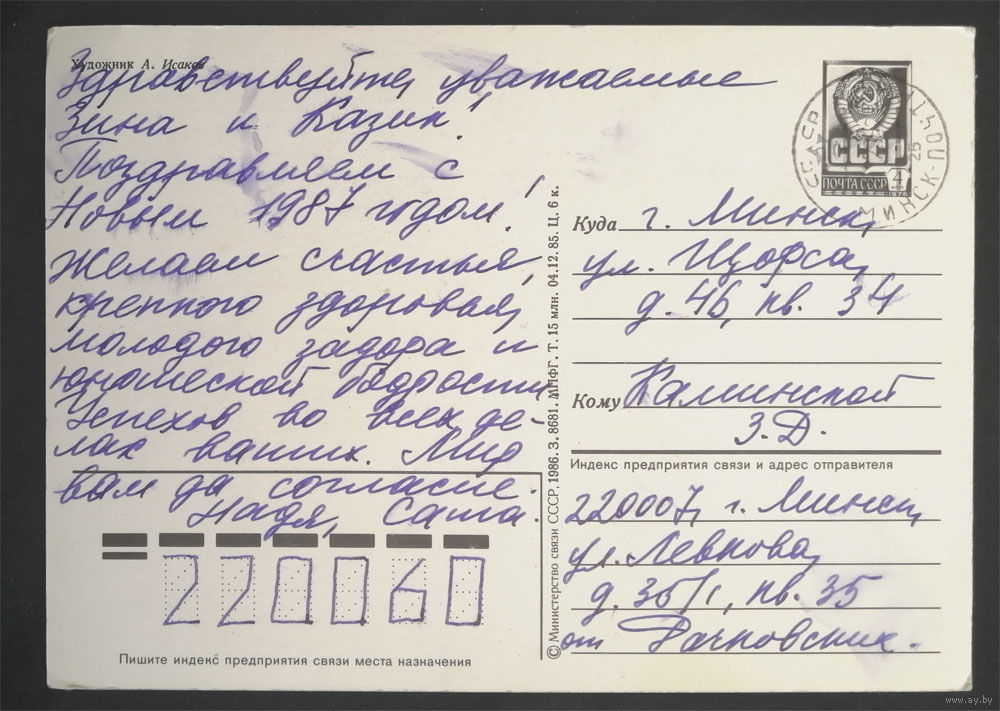 Художник А. Исаков
Здравствуйте, уважаемые
Зина и Казик!
Поздравляем с
Новым 1987 годом!
Желаем счастья,
крепкого здоровья,
молодого задора и
юношеской бодрости,
Успехов во всех де-
лах ваших. Мир
вам да согласие.
Надя, Саша.
220060
Пишите индекс предприятия связи места назначения
© Министерство связи СССР, 1986. З. 8681. МПФГ. Т. 15 млн. 04.12.85. Ц. 6 к.
СССР
ПОЧТА СССР 4
МИНСК-ПОЧТ
Куда г. Минск,
ул. Щорса,
д. 4б, кв. 34
Кому Каминской
З. Д.
Индекс предприятия связи и адрес отправителя
220007, г. Минск,
ул. Левкова,
д. 35/1, кв. 35
от Рачковских.
www.ay.by